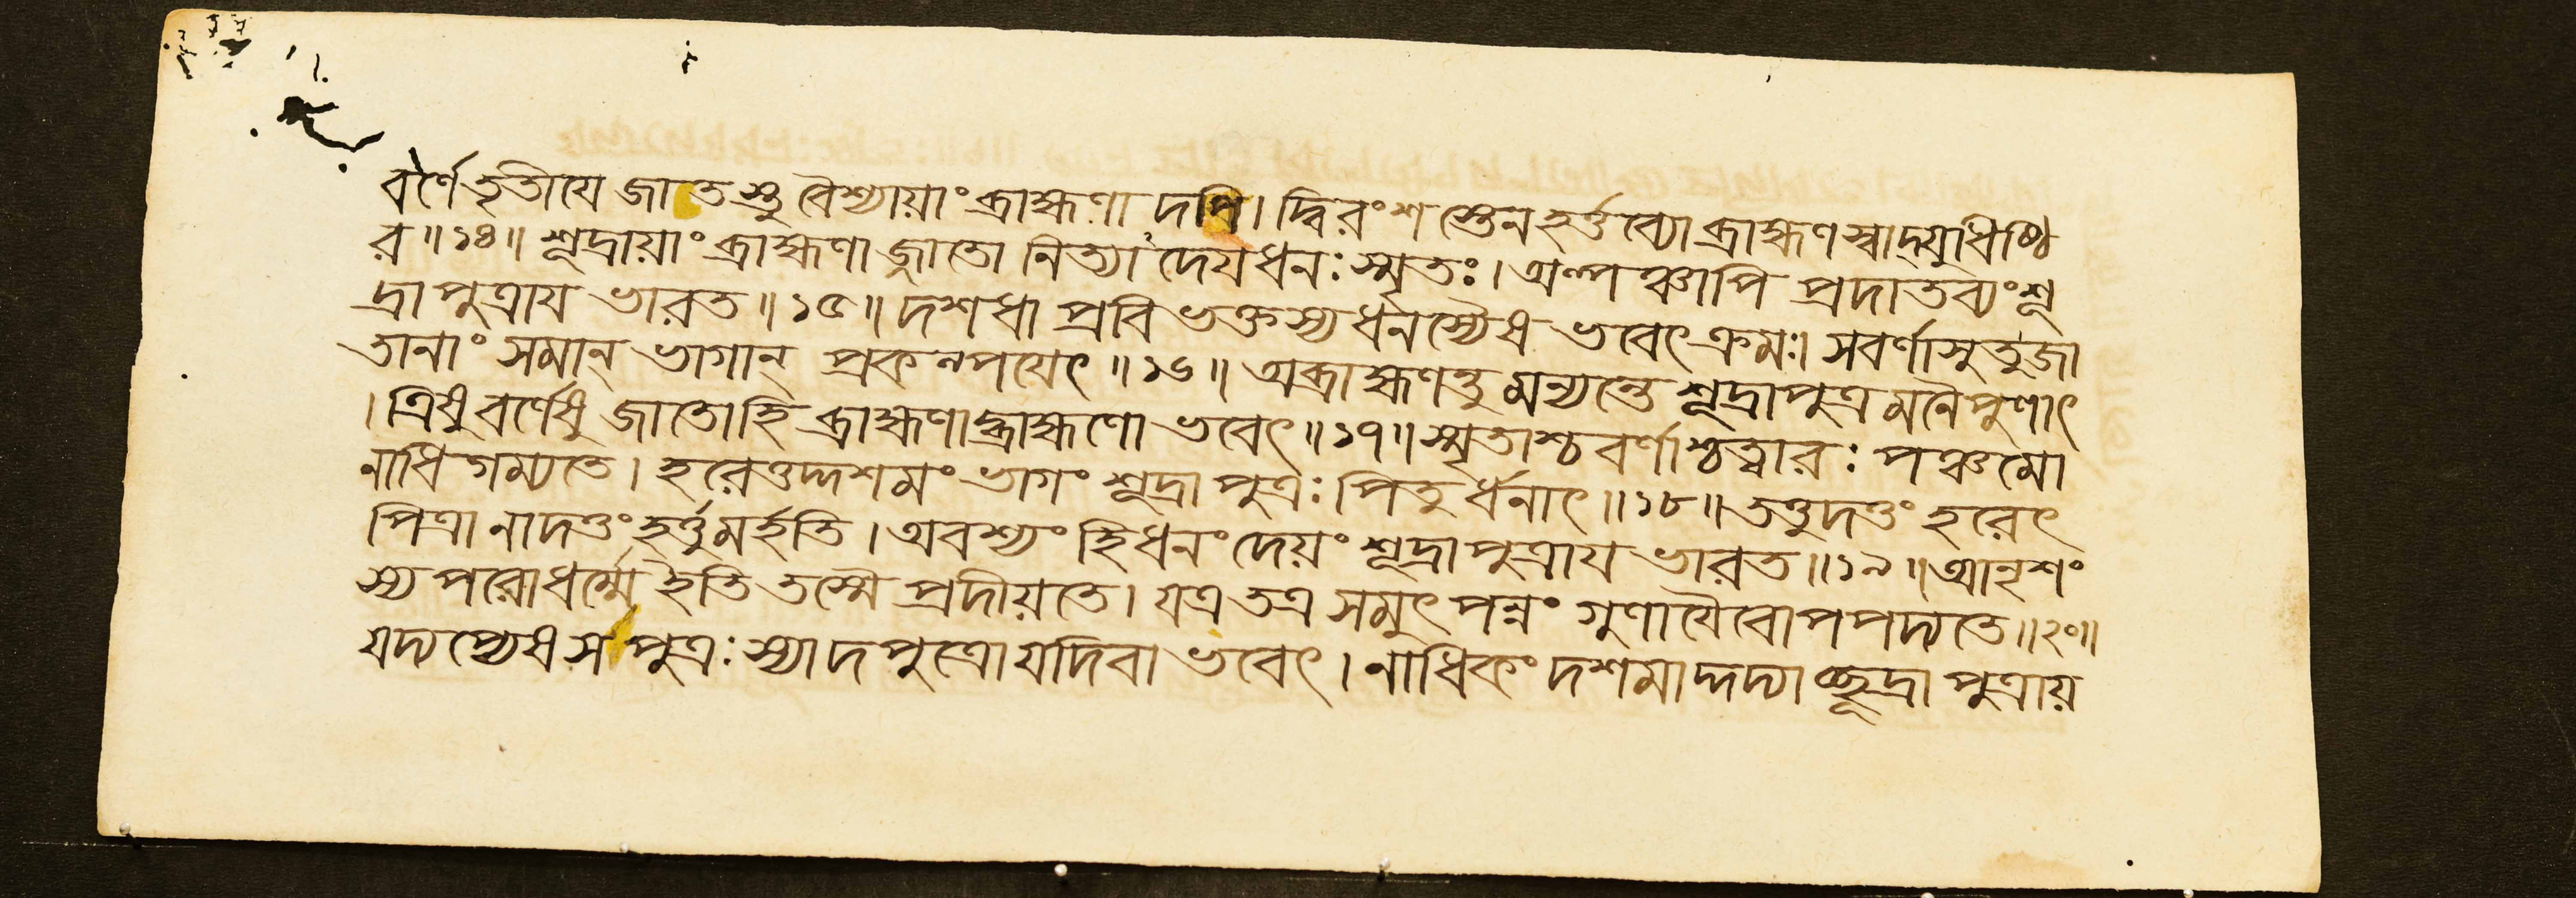 বর্ণে তৃতীযে জাতস্তু বৈশ্যায়াং ব্রাহ্মণাদপি। দ্বিরংশস্তেন হর্ত্তব্যো ব্রাহ্মণস্বাদ্যুধিষ্ঠি
র॥১৪॥ শূদ্রায়াং ব্রাহ্মণাজ্জাতো নিত্যাদেযধনঃ স্মৃতঃ। অল্পঞ্চাপি প্রদাতব্যং শূ
দ্রাপুত্রায ভারত॥১৫॥ দশধা প্রবিভক্তস্য ধনস্যৈষ ভবেৎ ক্রমঃ। সবর্ণাসু তু জা
তানাং সমান্ ভাগান্ প্রকল্পযেৎ॥১৬॥ অব্রাহ্মণন্তু মন্যন্তে শূদ্রাপুত্রমনৈপুণাৎ
। ত্রিষু বর্ণেষু জাতোহি ব্রাহ্মণাদ্ব্রাহ্মণো ভবেৎ॥১৭॥ স্মৃতাশ্চ বর্ণাশ্চত্বারঃ পঞ্চমো
নাধিগম্যতে। হরেত্তদ্দশমং ভাগং শূদ্রাপুত্রঃ পিতুর্ধনাৎ॥১৮॥ তত্তুদত্তং হরেৎ
পিত্রা নাদত্তং হর্ত্তুমর্হতি। অবশ্যং হি ধনং দেয়ং শূদ্রাপুত্রায ভারত॥১৯॥ আনৃশং
স্য পরোধর্ম্মো ইতি তস্মৈ প্রদীয়তে। যত্র তত্র সমুৎপন্নং গুণাযৈবোপপদ্যতে॥২০॥
যদ্যপ্যেষ স পুত্রঃ স্যাদপুত্রো যদি বা ভবেৎ। নাধিকং দশমাদ্দদ্যাচ্ছূদ্রাপুত্রায়